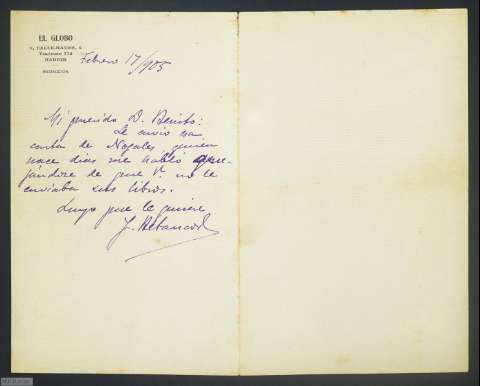 EL GLOBO
CALLE MAYOR, 6
MADRID
REDACCIÓN
Febrero 17/905
Mi querido D. Benito:
Le envio esa
carta de Nogales quien
hace dias me habló que-
jándose de que V. no le
enviaba sus libros.
Suyo que le quiere
J. Betancort